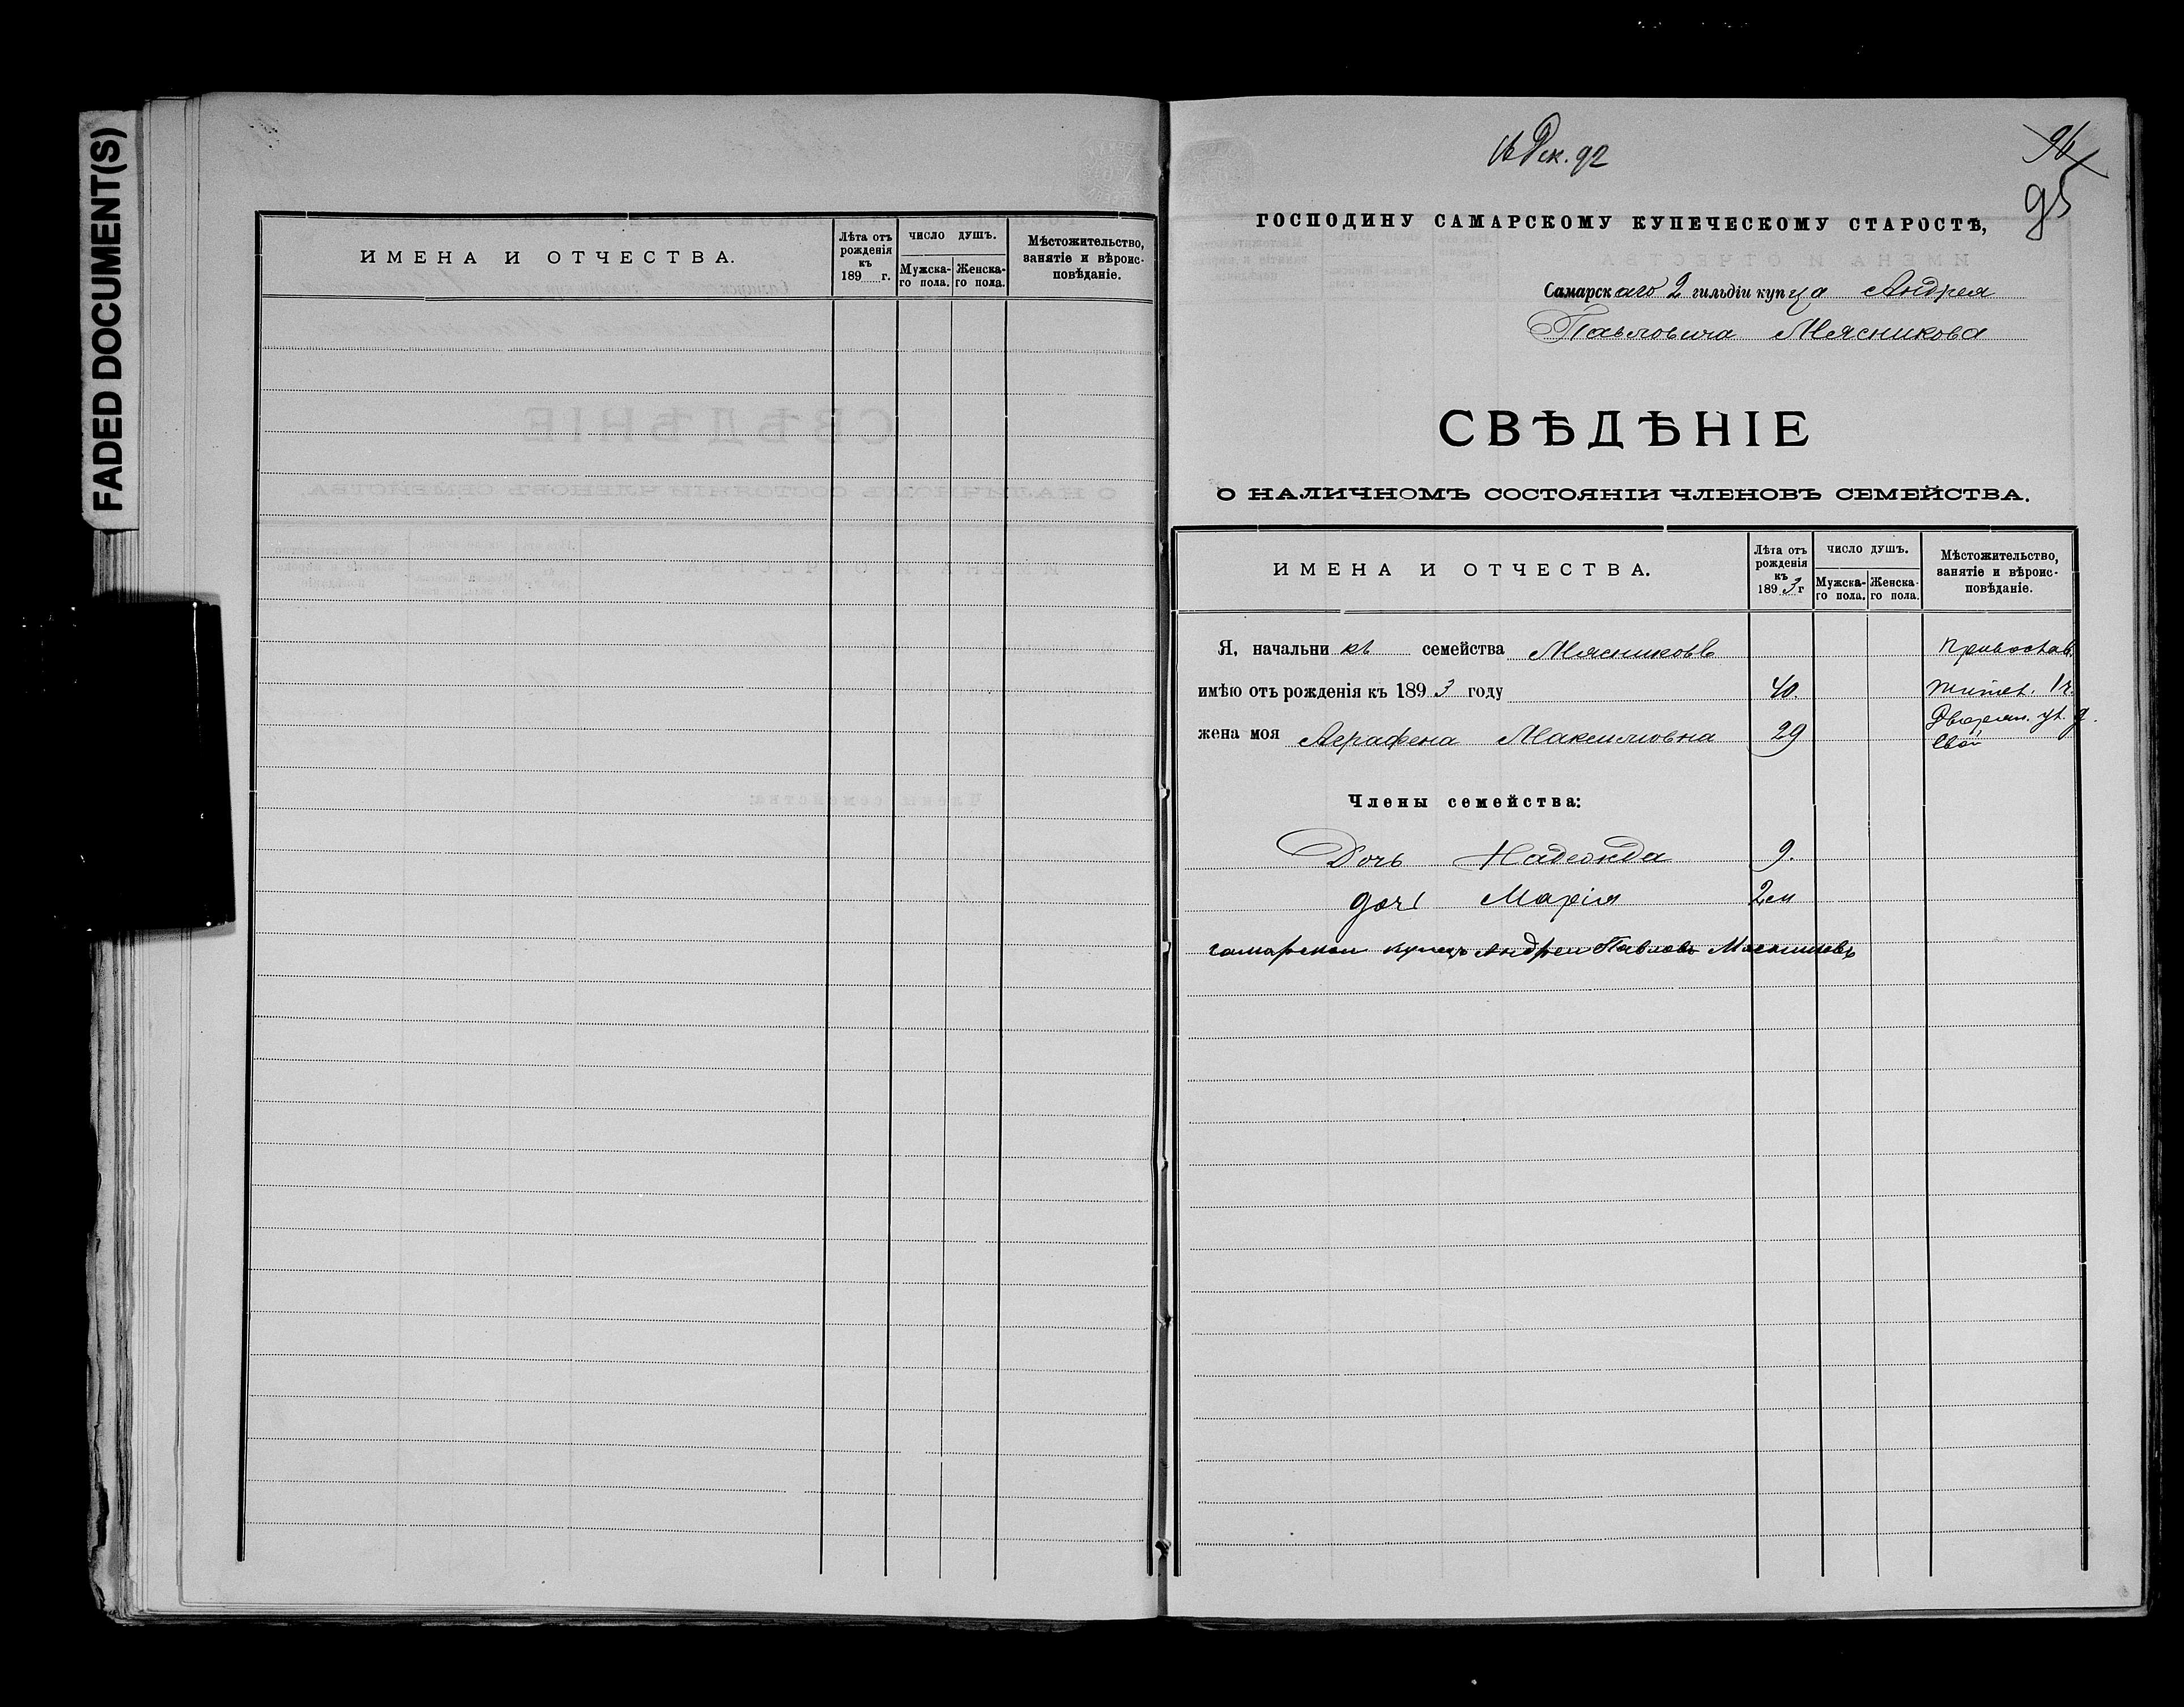 FADED DOCUMENT(S)
ИМЕНА И ОТЧЕСТВА.
Лѣта отъ рожденія къ 189 г.
ЧИСЛО ДУШЪ.
Мужска-го пола.
Женска-го пола.
Мѣстожительство, занятіе и вѣроис-повѣданіе.
Дек. 92
96
95
ГОСПОДИНУ САМАРСКОМУ КУПЕЧЕСКОМУ СТАРОСТѢ,
Самарскаго 2 гильдіи купца Андрея
Павловича Мясникова
СВѢДѢНІЕ
О НАЛИЧНОМЪ СОСТОЯНІИ ЧЛЕНОВЪ СЕМЕЙСТВА.
ИМЕНА И ОТЧЕСТВА.
Лѣта отъ рожденія къ 1893 г
ЧИСЛО ДУШЪ.
Мужска-го пола.
Женска-го пола.
Мѣстожительство, занятіе и вѣроис-повѣданіе.
Я, начальникъ семейства Мясниковъ Православ.
имѣю отъ рожденія къ 1893 году 40. жител. 1 ч.
жена моя Аграфена Максимовна 29 Дворян. ул. д.
свой
Члены семейства:
Дочь Надежда 9.
дочь Марія 2 м
самарской купецъ Андреи Павловъ Мясниковъ